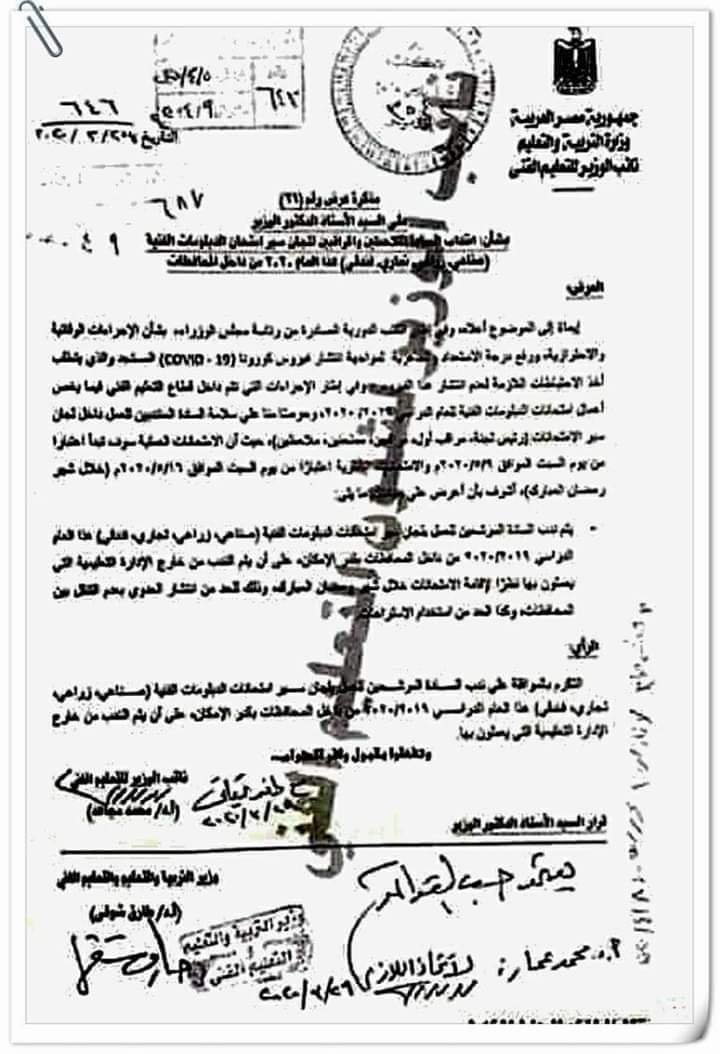 جمهورية مصر العربية
وزارة التربية والتعليم
نائب الوزير للتعليم الفنى
٦٤٦
٦٤٣
التاريخ
٦٨٧
مذكرة عرض رقم
على السيد الأستاذ الدكتور الوزير
بشأن: انتداب السادة الملاحظين والمراقبين للجان سير امتحان الدبلومات الفنية
(صناعي، زراعي، تجاري، فندقي) لهذا العام ٢٠٢٠ من داخل المحافظات
العرض:
إيماءً إلى الموضوع أعلاه، وفي إطار الكتب الدورية الصادرة من رئاسة مجلس الوزراء، بشأن الإجراءات الوقائية
والاحترازية، ورفع درجة الاستعداد لمواجهة انتشار فيروس كورونا (COVID - 19) المستجد والذي يتطلب
أخذ الاحتياطات اللازمة لعدم انتشار هذا الفيروس، وفي إطار الإجراءات التي تتم داخل قطاع التعليم الفني فيما يخص
أعمال امتحانات الدبلومات الفنية للعام الدراسي ٢٠٢٠/٢٠١٩، وحرصًا منا على سلامة السادة المنتدبين للعمل داخل لجان
سير الامتحانات (رئيس لجنة، مراقب أول، مراقبين، ملاحظين)، حيث أن الامتحانات العملية سوف تبدأ اعتبارًا
من يوم السبت الموافق ٢٠٢٠/٥/٩م والامتحانات النظرية اعتبارًا من يوم السبت الموافق ٢٠٢٠/٥/١٦م (خلال شهر
رمضان المبارك)، أتشرف بأن أعرض على سيادتكم ما يلي:
- يتم ندب السادة المرشحين للعمل بلجان سير امتحانات الدبلومات الفنية (صناعي، زراعي، تجاري، فندقي) هذا العام
الدراسي ٢٠٢٠/٢٠١٩ من داخل المحافظات بقدر الإمكان، على أن يتم الندب من خارج الإدارة التعليمية التي
يعملون بها نظرًا لإقامة الامتحانات خلال شهر رمضان المبارك، وذلك للحد من انتشار العدوى بعدم التنقل بين
المحافظات، وكذا الحد من استخدام الاستراحات.
الرأي:
التكرم بالموافقة على ندب السادة المرشحين للعمل بلجان سير امتحانات الدبلومات الفنية (صناعي، زراعي،
تجاري، فندقي) هذا العام الدراسي ٢٠٢٠/٢٠١٩ من داخل المحافظات بقدر الإمكان، على أن يتم الندب من خارج
الإدارة التعليمية التي يعملون بها.
وتفضلوا بقبول وافر الاحترام،،،
نائب الوزير للتعليم الفني
(أ.د/ محمد مجاهد)
قرار السيد الأستاذ الدكتور الوزير
وزير التربية والتعليم والتعليم الفني
(أ.د/ طارق شوقي)
يعتمد حسب القواعد
أ.د. محمد عمارة
لاتخاذ اللازم
٢٠٢٠/٣/٢٩
وزير التربية والتعليم
التعليم الفني
نائب الوزير لشئون التعليم الفني